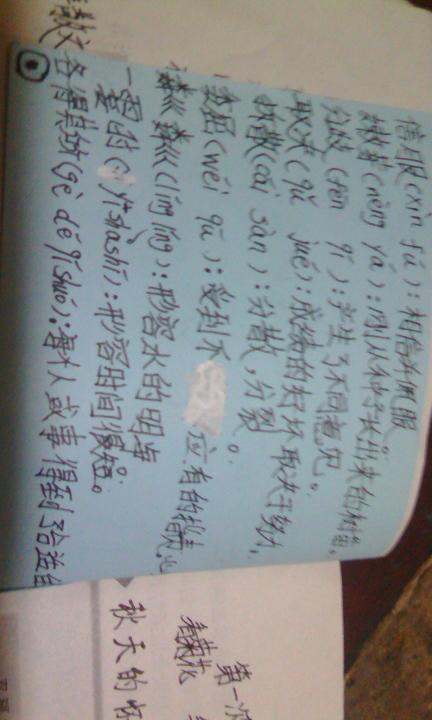 信服(xìn fú):相信并佩服
嫩芽(nèng yá):刚从种子长出来的树苗。
分歧(fēn qí):产生了不同意见。
取决(qǔ jué):成绩的好坏取决于努力。
拆散(cāi sàn):分散,分裂。
委屈(wěi qū):受到不 应有的指责
粼粼(lín lín):形容水的明净
一霎时(yí shà shí):形容时间很短。
各得其所(gè dé qí suǒ):每个人或事得到
第一次
看菊花
秋天的怀